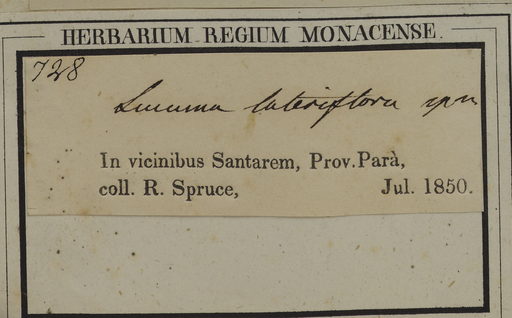 HERBARIUM REGIUM MONACENSE.
728
Lucuma lateriflora
In vicinibus Santarem, Prov. Parà,
coll. R. Spruce, Jul. 1850.